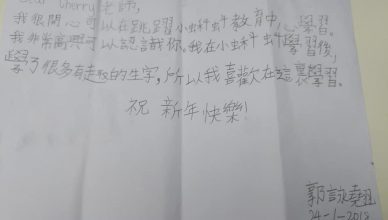 Dear Cherry老師,
我很開心可以在跳躍小蝌蚪教育中心學習。
我非常高興可以認識你。我在小蝌蚪學習後,
學了很多有趣的生字,所以我喜歡在這裏學習。
祝 新年快樂!
郭詠
24-1-2018